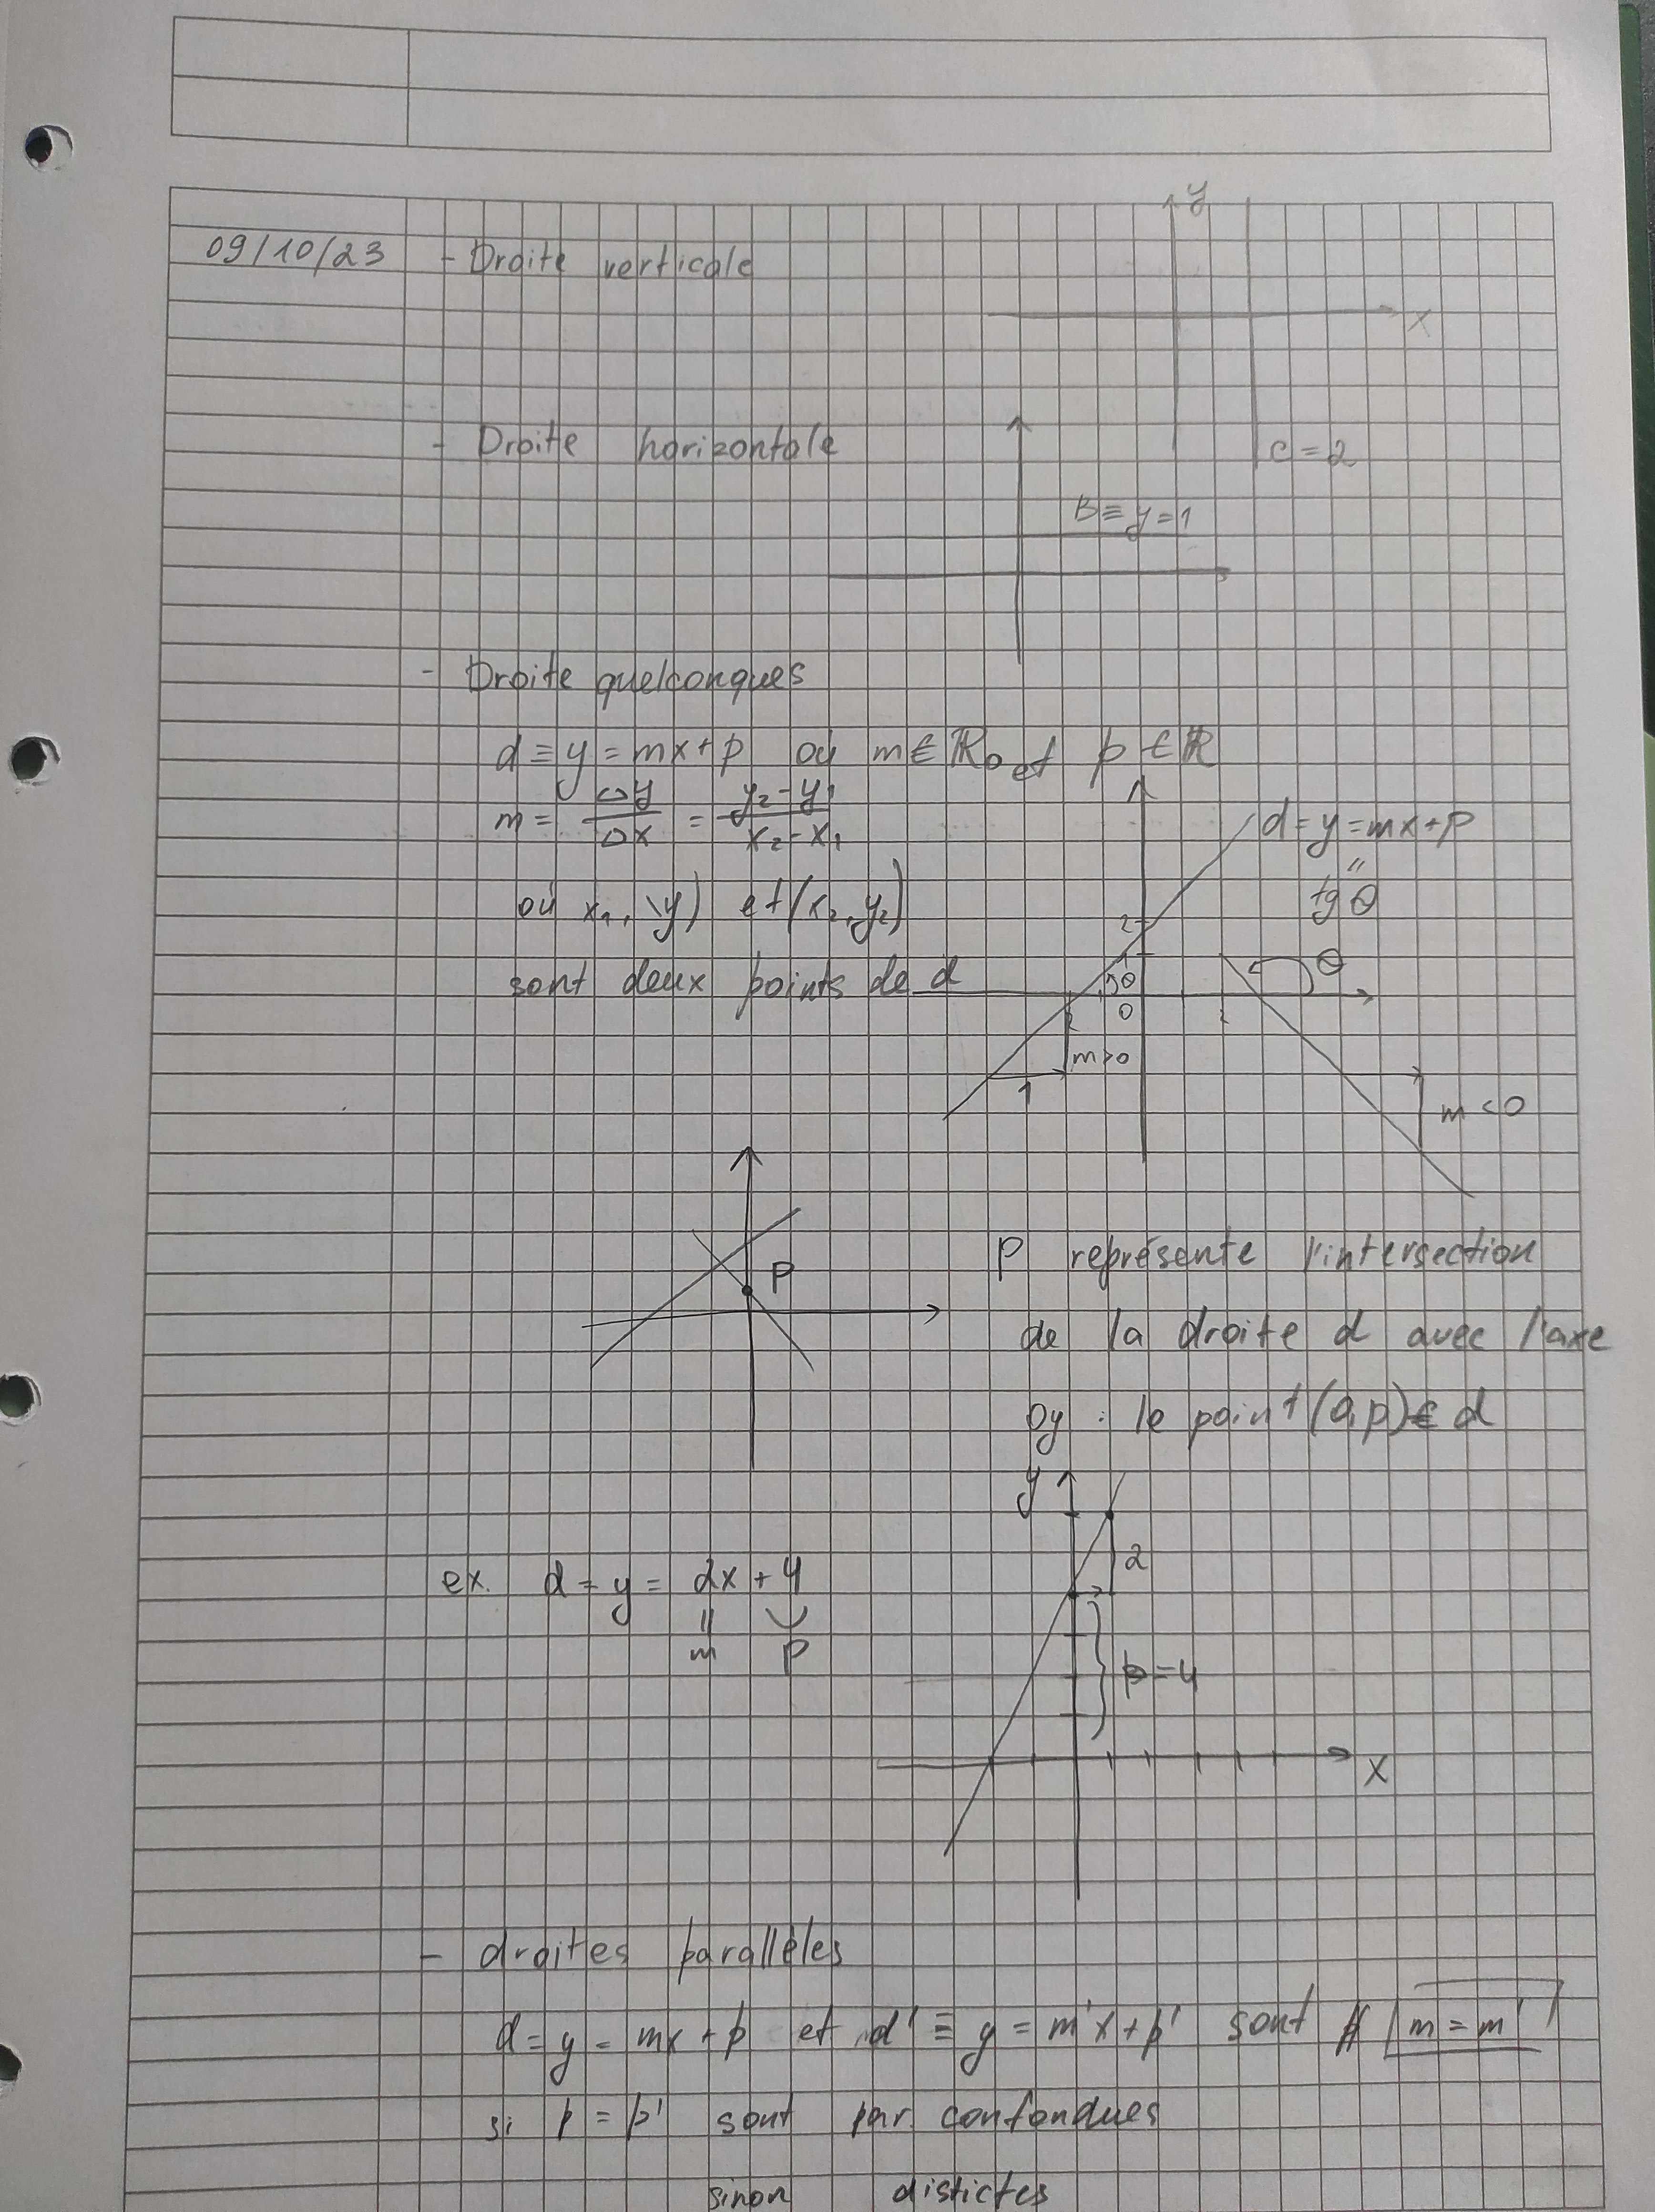 09/10/23 - Droite verticale
y
x
c = 2
- Droite horizontale
B ≡ y = 1
- Droite quelconques
d ≡ y = mx + p où m ∈ ℝ₀ et p ∈ ℝ
m = Δy/Δx = (y₂ - y₁)/(x₂ - x₁)
où x₁, y) et (x₂, y₂)
sont deux points de d
d = y = mx + p
"
tg θ
2
1
θ
θ
0
m > 0
1
m < 0
P
P représente l'intersection
de la droite d avec l'axe
oy : le point (0,p) ∈ d
y
2
p = 4
x
ex. d = y = 2x + 4
" m
p
- droites parallèles
d = y = mx + p et d' ≡ y = m'x + p' sont // m = m'
si p = p' sont par. confondues
sinon distictes